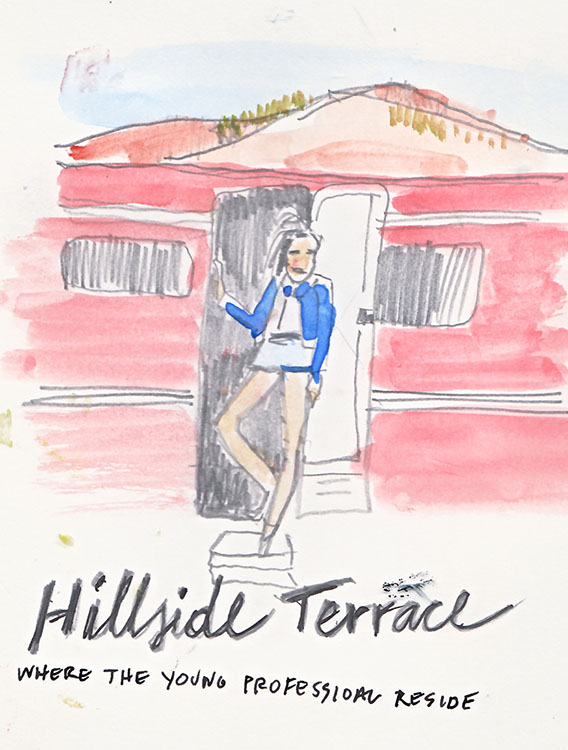 Hillside Terrace
WHERE THE YOUNG PROFESSIONAL RESIDE